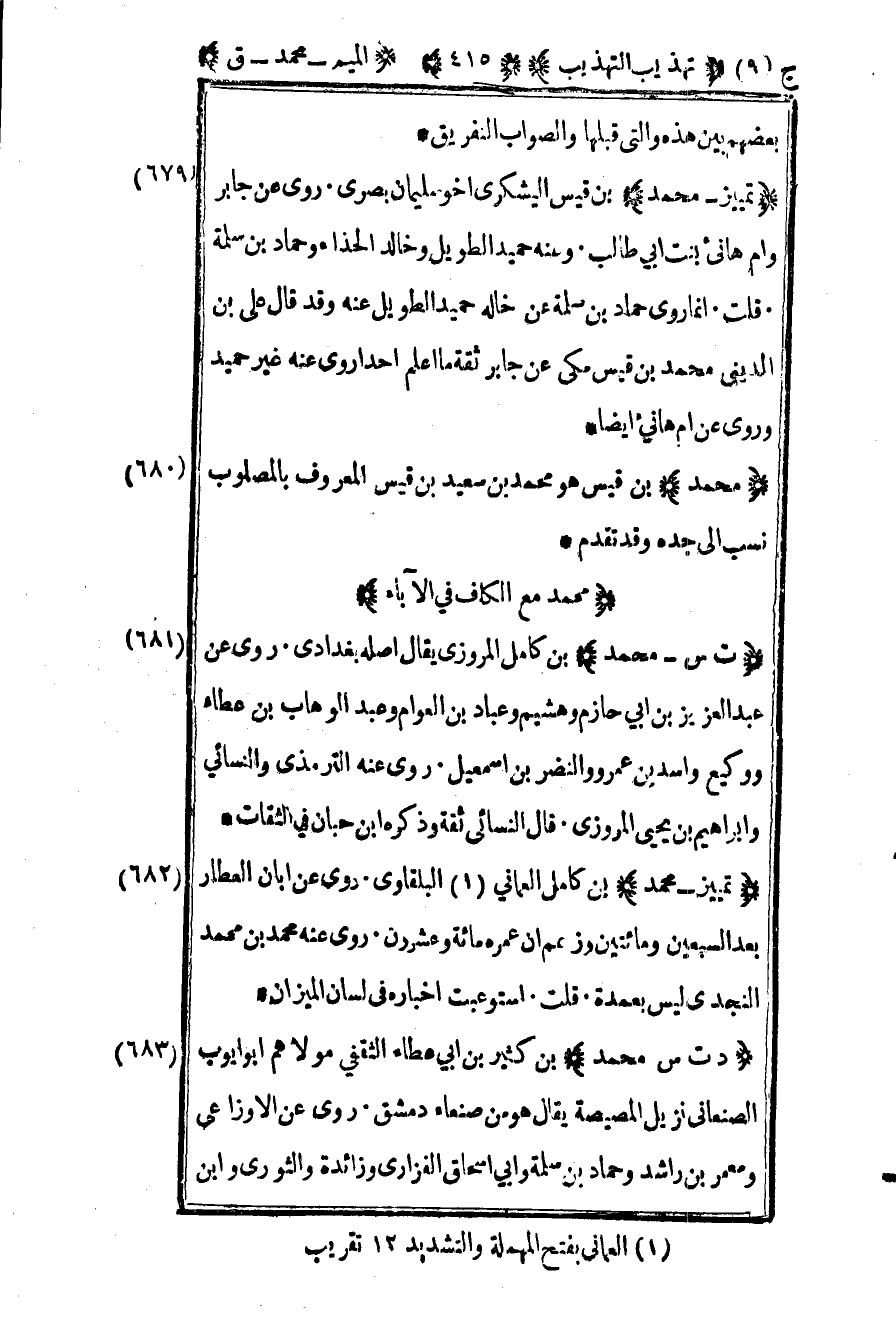 ج (٩) ﴿ تهذيب التهذيب ﴾ ﴿ ٤١٥ ﴾ ﴿ الميم ــ محمد ــ ق ﴾
بعضهم بين هذه والتي قبلها والصواب التفريق *
(٦٧٩) ﴿ تمييز ــ محمد ﴾ بن قيس اليشكرى اخو سليمان بصرى · روى عن جابر
وام هانئ بنت ابي طالب · وعنه حميد الطويل وخالد الحذاء وحماد بن سلمة
· قلت · انما روى حماد بن سلمة عن خاله حميد الطويل عنه وقد قال على بن
المديني محمد بن قيس مكى عن جابر ثقة ما اعلم احدا روى عنه غير حميد
وروى عن ام هانئ ايضا *
(٦٨٠) ﴿ محمد ﴾ بن قيس هو محمد بن سعيد بن قيس المعروف بالمصلوب
نسب الى جده وقد تقدم *
﴿ محمد مع الكاف في الآباء ﴾
(٦٨١) ﴿ ت س ــ محمد ﴾ بن كامل المروزى يقال اصله بغدادى · روى عن
عبد العزيز بن ابي حازم وهشيم وعباد بن العوام وعبد الوهاب بن عطاء
ووكيع واسد بن عمرو والنضر بن اسمعيل · روى عنه الترمذى والنسائي
وابراهيم بن يحيى المروزى · قال النسائى ثقة وذكره ابن حبان في الثقات *
(٦٨٢) ﴿ تمييز ــ محمد ﴾ بن كامل العماني (١) البلقاوى · روى عن ابان العطار
بعد السبعين ومائتين وزعم ان عمره مائة وعشرون · روى عنه محمد بن محمد
النجدى ليس بعمدة · قلت · استوعبت اخباره فى لسان الميزان *
(٦٨٣) ﴿ د ت س محمد ﴾ بن كثير بن ابي عطاء الثقفي مولاهم ابو ايوب
الصنعانى نزيل المصيصة يقال هو من صنعاء دمشق · روى عن الاوزاعي
ومعمر بن راشد وحماد بن سلمة وابي اسحاق الفزارى وزائدة والثورى وابن
(١) العمانى بفتح المهملة والتشديد ١٢ تقريب